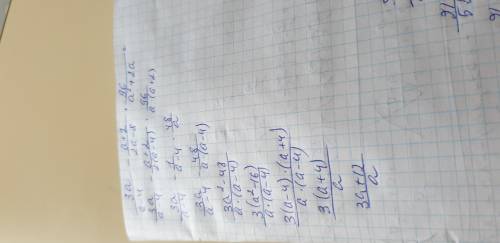 3a/a-4 - a+2/2a-8 · 96/a²+2a =
3a/a-4 - a+2/2(a-4) · 96/a·(a+2)
3a/a-4 - 1/a-4 · 48/a
3a/a-4 - 48/a·(a-4)
3a²-48/a·(a-4)
3(a²-16)/a·(a-4)
3(a-4)·(a+4)/a·(a-4)
3(a+4)/a
3a+12/a